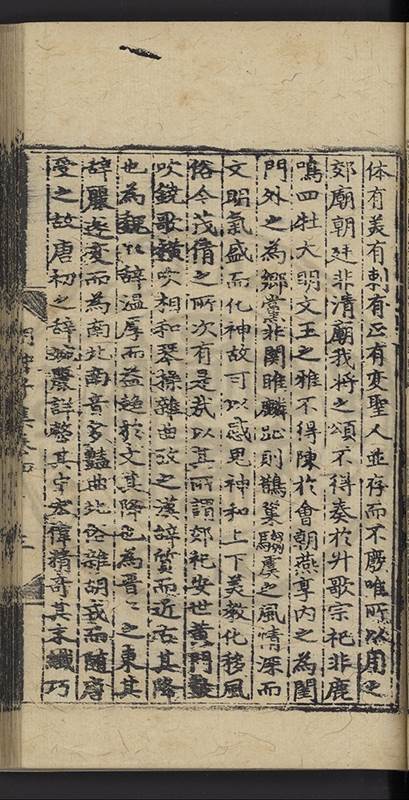 体有美有刺有正有变聖人並存而不廢唯所以用之
郊廟朝廷非清廟我将之頌不得奏於升歌宗祀非鹿
鳴四牡大明文王之雅不得陳於會朝燕享内之為閨
門外之為鄉黨非関雎麟趾則鵲巢騶虞之風情深而
文明氣盛而化神故可以感鬼神和上下美教化移風
俗今茂倩之所次有是哉以其所謂郊祀安世黄門鼓
吹鐃歌横吹相和琴操雜曲攷之漢辞質而近古其降
也為魏〻辞温厚而益趍於文其降也為晋〻之東其
辞麗遂変而為南北南音多豔曲北俗雜胡戎而随唐
受之故唐初之辞婉麗詳整其中宏偉精奇其末纖巧
胡仲子集卷四